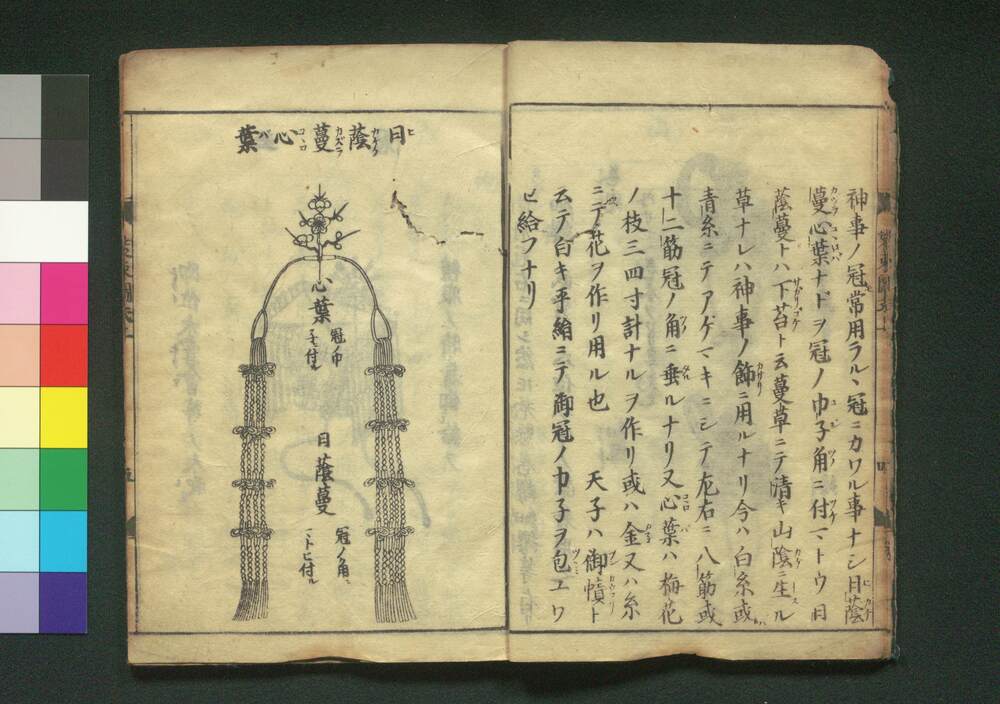 神事ノ冠常用ラルヽ冠ニカワル事ナシ日蔭
蔓心葉ナドヲ冠ノ巾子角ニ付マトウ日
蔭蔓トハ下苔ト云蔓草ニテ清キ山陰ニ生ル
草ナレハ神事ノ飾ニ用ルナリ今ハ白糸或
青糸ニテアゲマキニシテ左右ニ八筋或
十二筋冠ノ角ニ垂ルナリ又心葉ハ梅花
ノ枝三四寸計ナルヲ作リ或ハ金又ハ糸
ニテ花ヲ作リ用ル也 天子ハ御幘ト
云テ白キ平絹ニテ御冠ノ巾子ヲ包ユワ
ヒ給フナリ
日蔭蔓心葉
心葉
冠ノ巾
子ニ付ル
日蔭蔓
冠ノ角ニ
マトヒ付ル